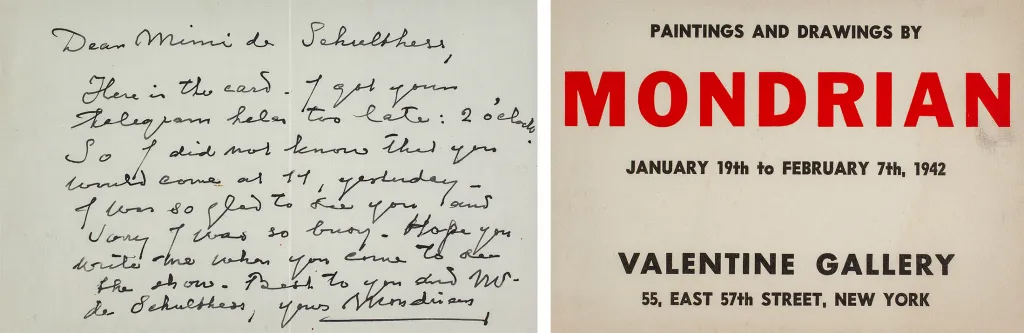 Dear Mimi de Schulthess,
Here is the card. I got your
telegram too late: 2 o'clock.
So I did not know that you
would come at 11, yesterday -
I was so glad to see you and
sorry I was so busy. Hope you
write me when you come to see
the show. Best to you and Mr.
de Schulthess, yours Mondrian
PAINTINGS AND DRAWINGS BY
MONDRIAN
JANUARY 19th to FEBRUARY 7th, 1942
VALENTINE GALLERY
55, EAST 57th STREET, NEW YORK